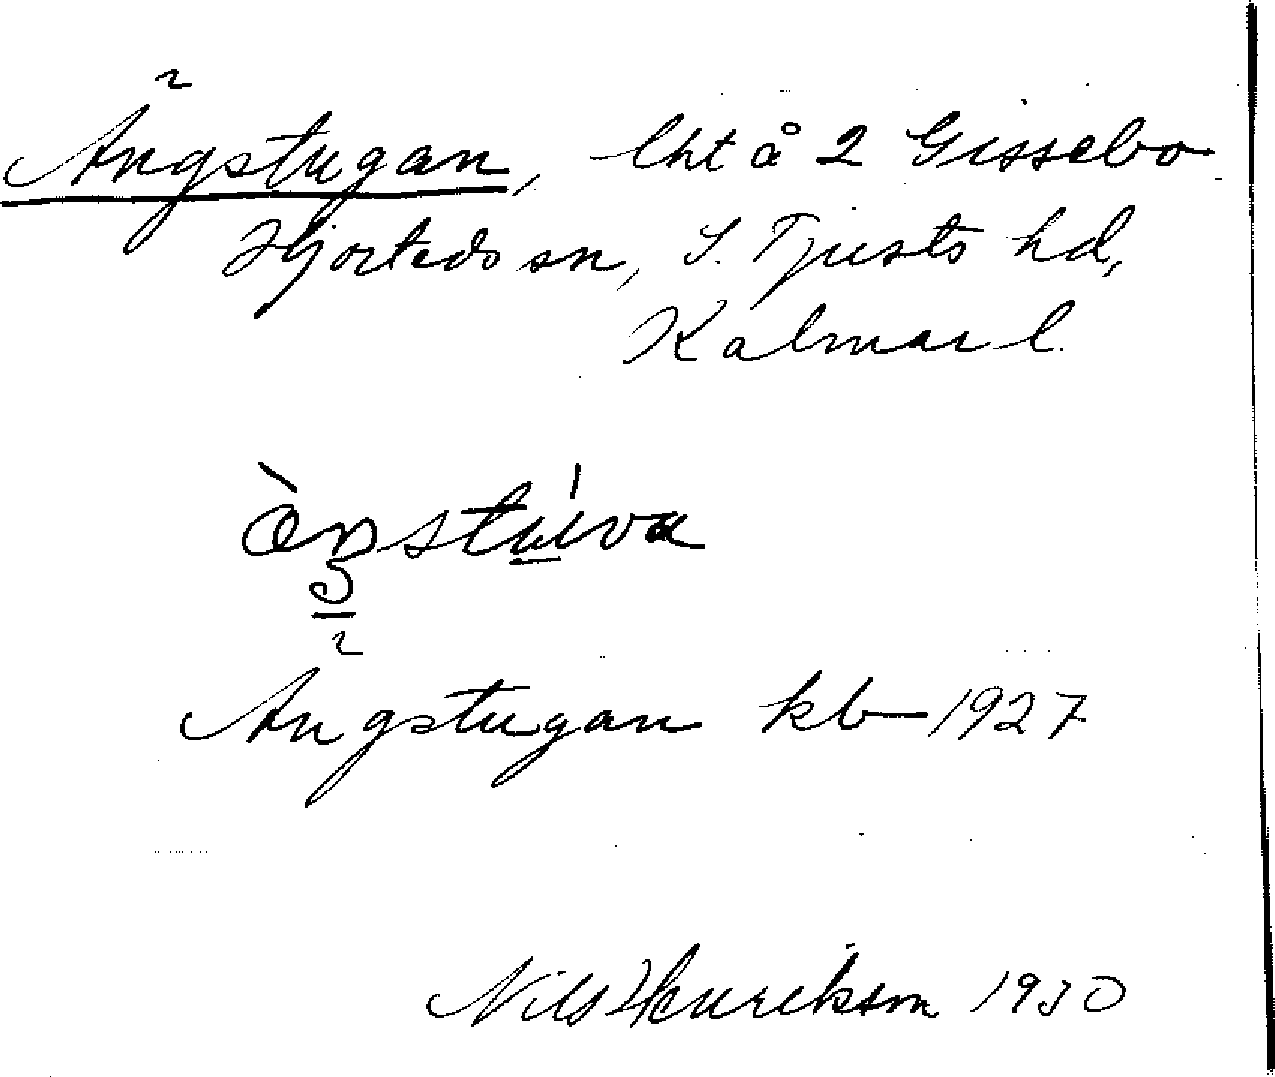 Ängstugan, lht å 2 Gissebo
Hjorteds sn, S. Tjusts hd,
Kalmar l.
Ängstugan kb 1927
Nils Henrikson 1930